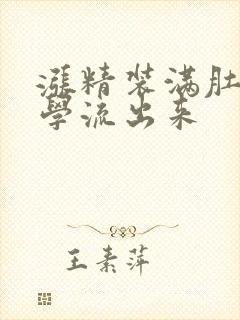 漲精装满肚
學流出来
王素萍